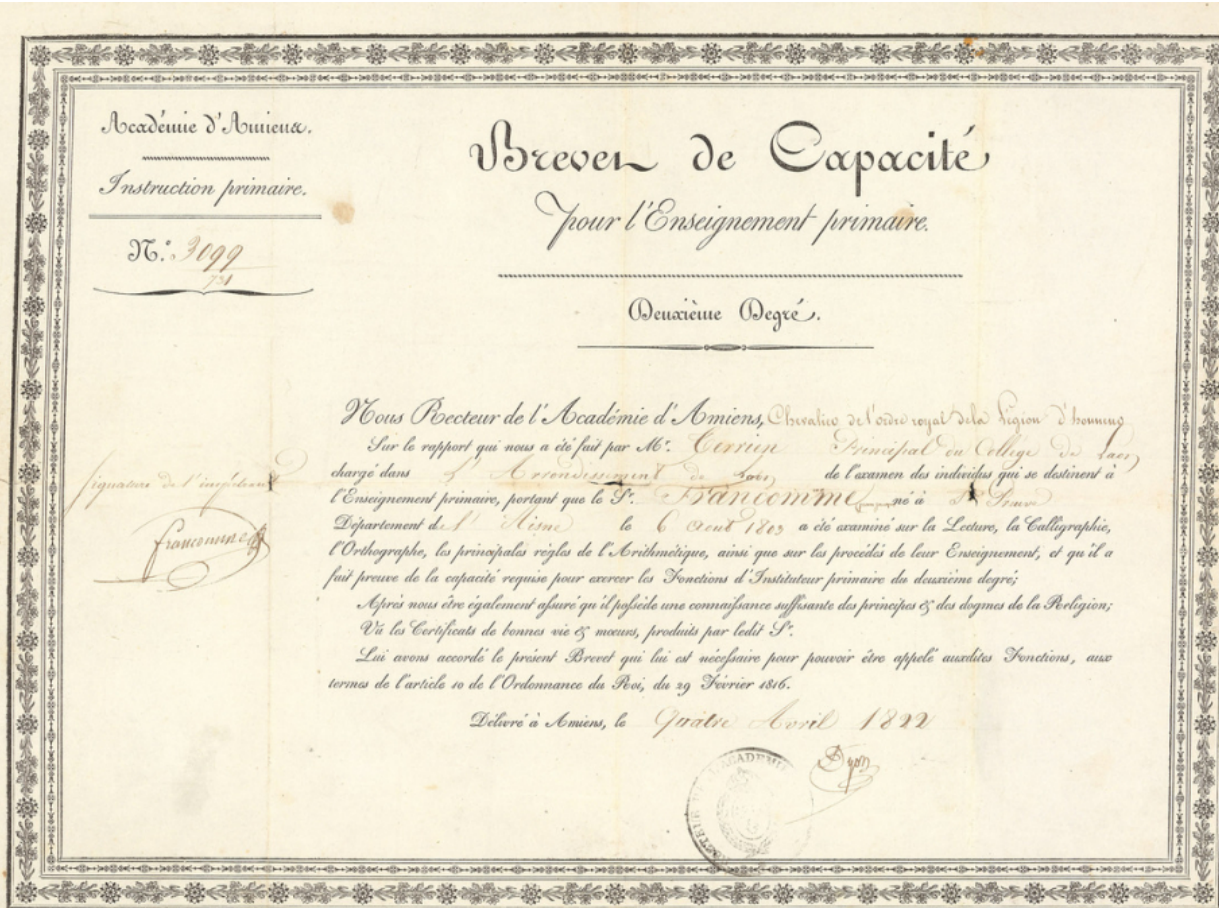 Académie d'Amiens.
Instruction primaire.
N.° 3099
731
Brevet de Capacité
pour l'Enseignement primaire.
Deuxième Degré.
Nous Recteur de l'Académie d'Amiens, Chevalier de l'ordre royal de la Légion d'honneur
Sur le rapport qui nous a été fait par Mr. Principal du College de Laon
chargé dans L'Arrondissement de Laon de l'examen des individus qui se destinent à
l'Enseignement primaire, portant que le Sr. Francomme né à
Département de l'Aisne le 6 Aout 1803 a été examiné sur la Lecture, la Calligraphie,
l'Orthographe, les principales règles de l'Arithmétique, ainsi que sur les procédés de leur Enseignement, et qu'il a
fait preuve de la capacité requise pour exercer les Fonctions d'Instituteur primaire du deuxième degré;
Après nous être également assuré qu'il possède une connaissance suffisante des principes & des dogmes de la Religion;
Vu les Certificats de bonnes vie & mœurs, produits par ledit Sr.
Lui avons accordé le présent Brevet qui lui est nécessaire pour pouvoir être appelé auxdites Fonctions, aux
termes de l'article 10 de l'Ordonnance du Roi, du 29 Février 1816.
Délivré à Amiens, le Quatre Avril 1822
signature de l'impétrant
francomme
L'ACADÉMIE